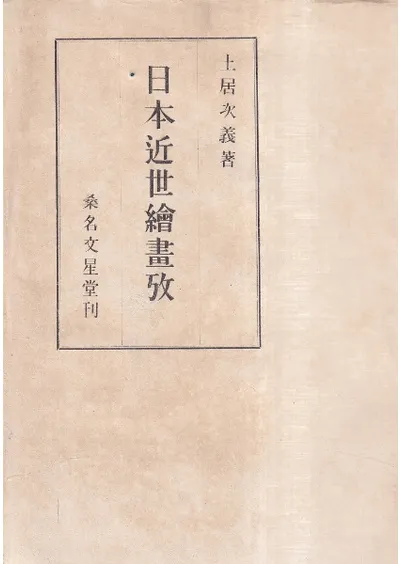 土居次義著
日本近世繪畫攷
桑名文星堂刊